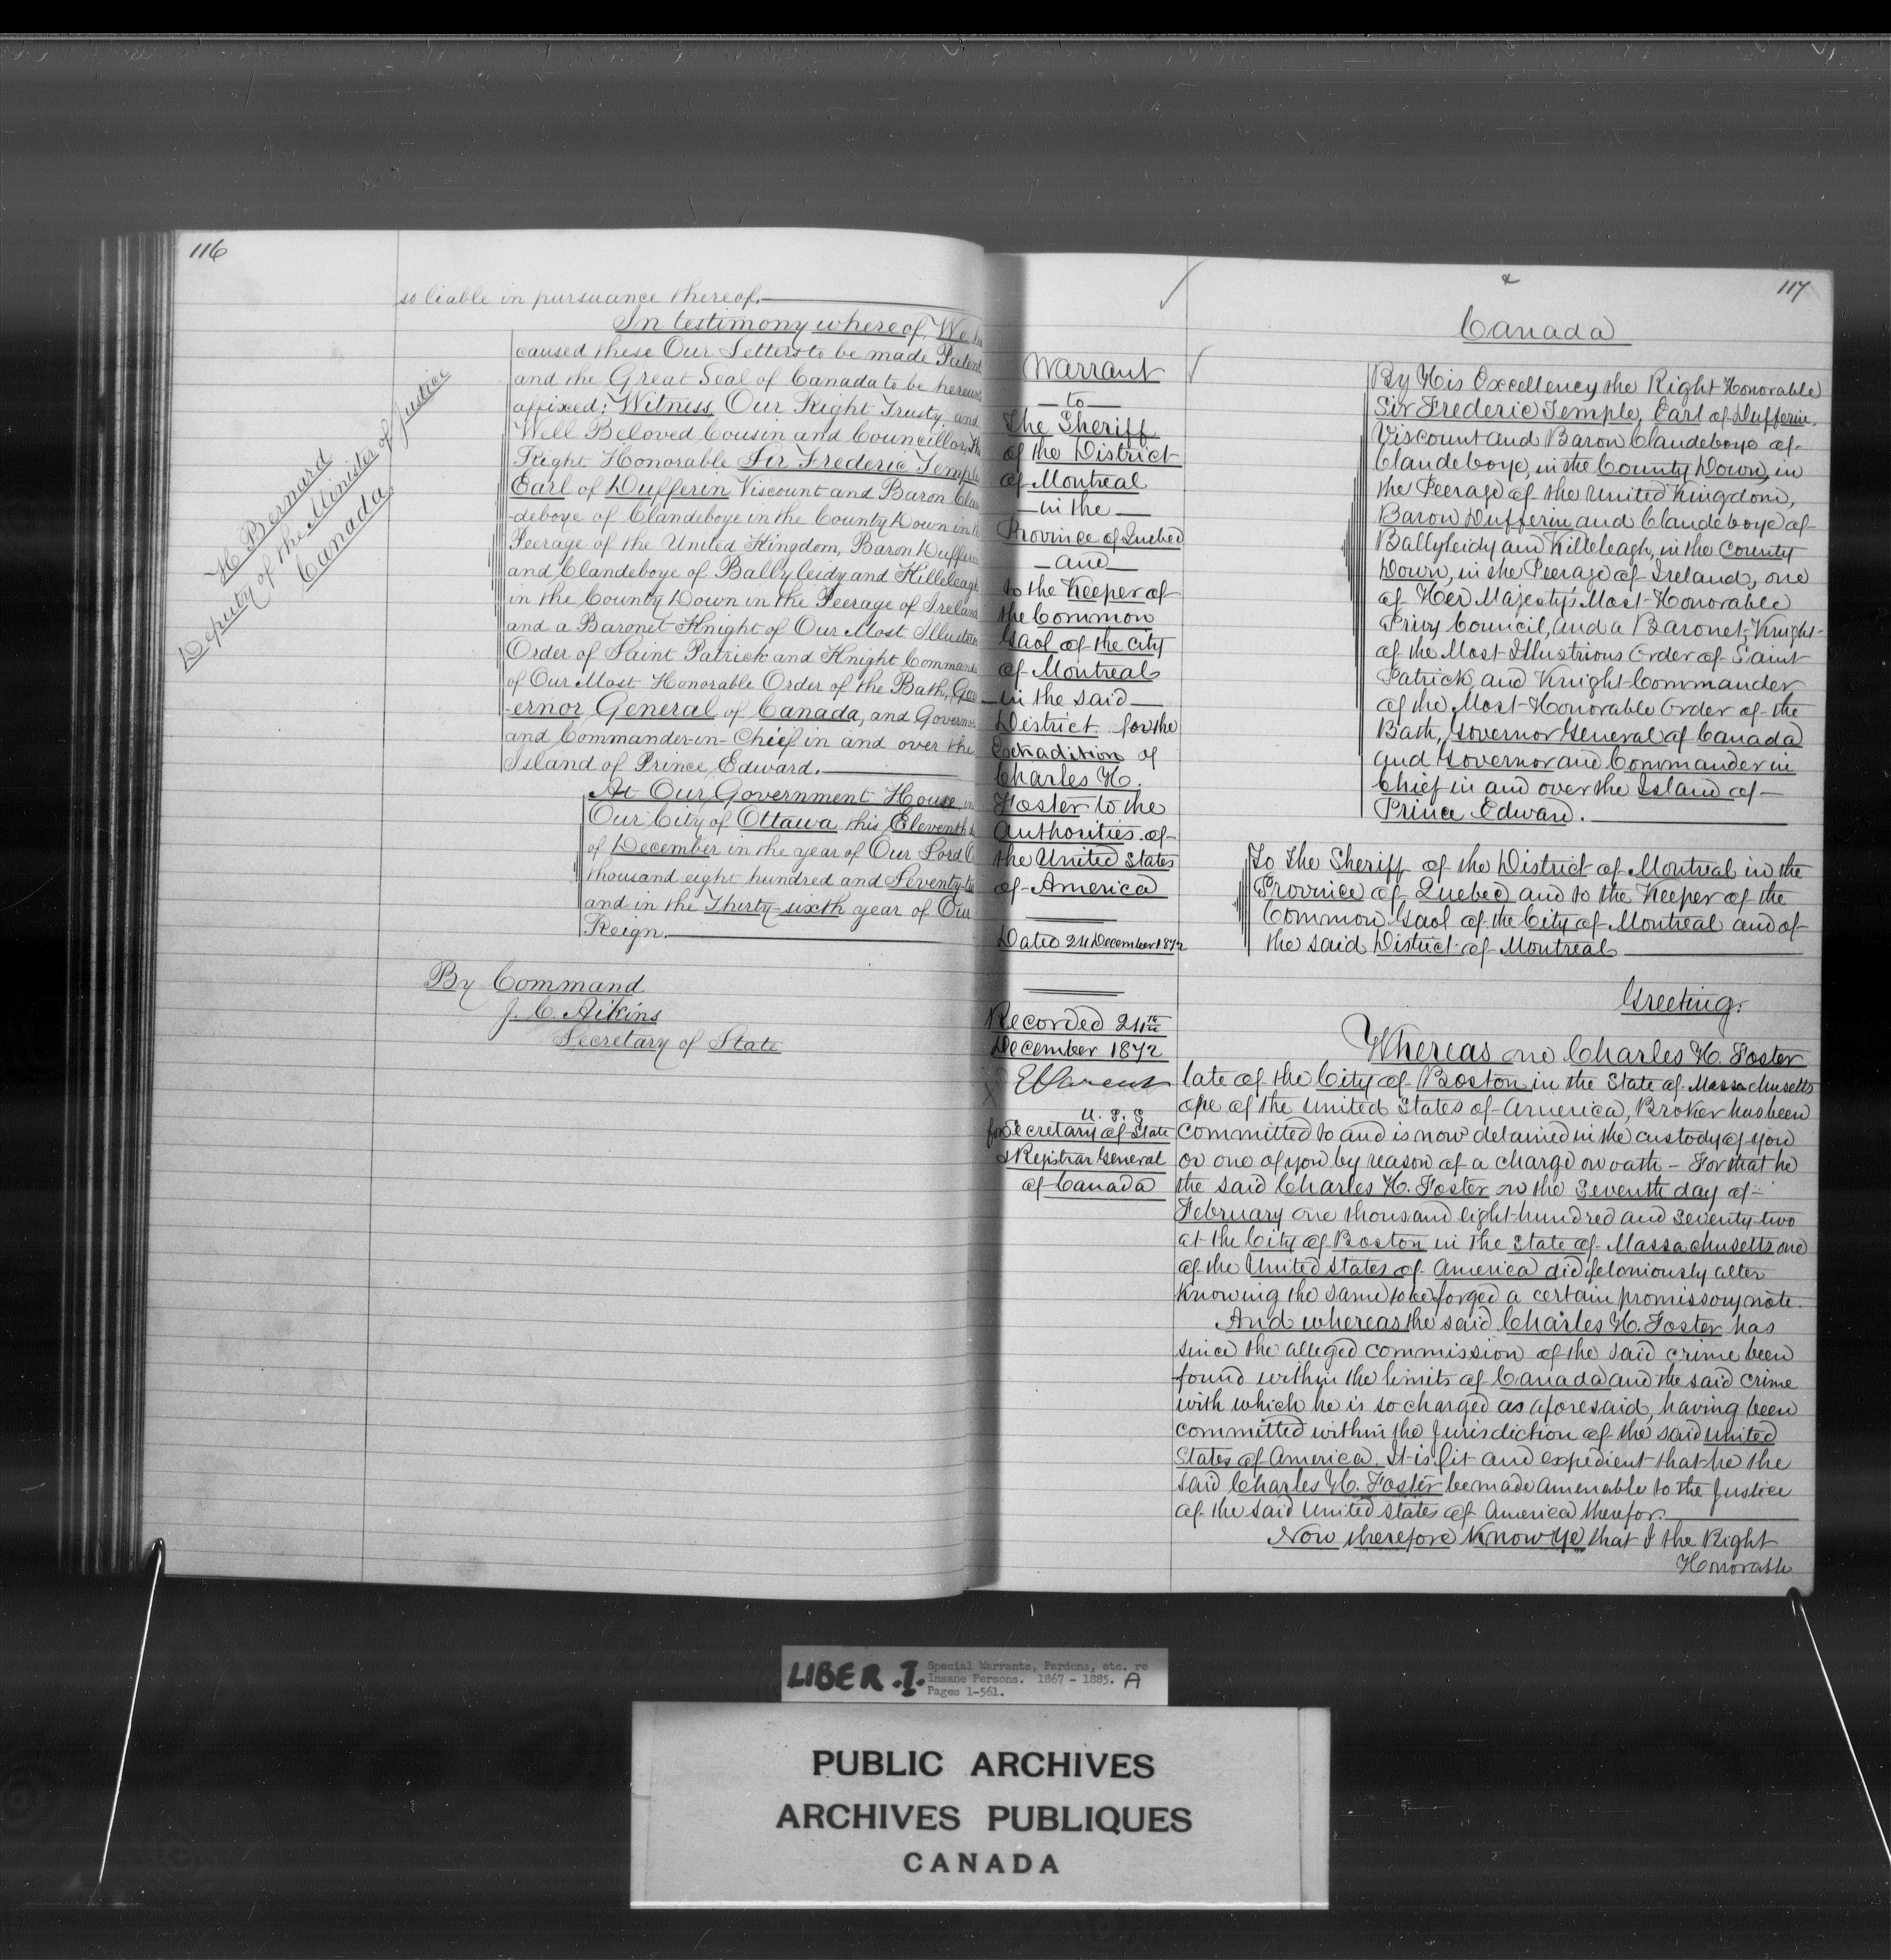 116
so liable in pursuance thereof.
In testimony whereof, We
caused these Our Letters to be made Patent
and the Great Seal of Canada to be hereunto
affixed: Witness, Our Right Trusty and
Well Beloved Cousin and Councillor, The
Right Honorable Sir Frederic Temple
Earl of Dufferin Viscount and Baron Clan
-deboye of Clandeboye in the County Down in the
Peerage of the United Kingdom, Baron Dufferin
and Clandeboye of Ballyleidy and Killeleagh
in the County Down in the Peerage of Ireland
and a Baronet Knight of Our Most Illustrious
Order of Saint Patrick and Knight Commander
of Our Most Honorable Order of the Bath, Gov
-ernor General of Canada, and Governor
and Commander-in-Chief in and over the
Island of Prince Edward.
At Our Government House, in
Our City of Ottawa this Eleventh
of December in the year of Our Lord
thousand eight hundred and Seventy-two
and in the Thirty-sixth year of Our
Reign.
By Command
J. C. Aikins
Secretary of State
H. Bernard
Deputy of the Minister of Justice
Canada
117
Warrant
to
The Sheriff
of the District
of Montreal
in the
Province of Quebec
and
to the Keeper of
the Common
Gaol of the City
of Montreal
in the said
District for the
Extradition of
Charles H.
Foster to the
Authorities of
the United States
of America
Dated 24 December 1872
Recorded 24th
December 1872
for Secretary of State
& Registrar General
of Canada
Canada
By His Excellency the Right Honorable
Sir Frederic Temple, Earl of Dufferin,
Viscount and Baron Clandeboye of
Clandeboye, in the County Down, in
the Peerage of the United Kingdom,
Baron Dufferin and Clandeboye of
Ballyleidy and Killeleagh, in the County
Down, in the Peerage of Ireland, one
of Her Majesty's Most Honorable
Privy Council, and a Baronet, Knight
of the Most Illustrious Order of Saint
Patrick, and Knight Commander
of the Most Honorable Order of the
Bath, Governor General of Canada
and Governor and Commander in
Chief in and over the Island of
Prince Edward.
To the Sheriff of the District of Montreal in the
Province of Quebec and to the Keeper of the
Common Gaol of the City of Montreal and of
the said District of Montreal
Greeting.
Whereas one Charles H. Foster
late of the City of Boston in the State of Massachusetts
one of the United States of America, Broker has been
committed to and is now detained in the custody of you
or one of you by reason of a charge on oath - For that he
the said Charles H. Foster on the Seventh day of
February one thousand eight hundred and seventy-two
at the City of Boston in the State of Massachusetts one
of the United States of America did feloniously utter
knowing the same to be forged a certain promissory note.
And whereas the said Charles H. Foster has
since the alleged commission of the said crime been
found within the limits of Canada and the said crime
with which he is so charged as aforesaid, having been
committed within the Jurisdiction of the said United
States of America. It is fit and expedient that he the
said Charles H. Foster be made amenable to the Justice
of the said United States of America therefor.
Now therefore Know Ye that I the Right
Honorable
LIBER.I. Special Warrants, Pardons, etc. re
Insane Persons. 1867 - 1885. A
Pages 1-561.
PUBLIC ARCHIVES
ARCHIVES PUBLIQUES
CANADA